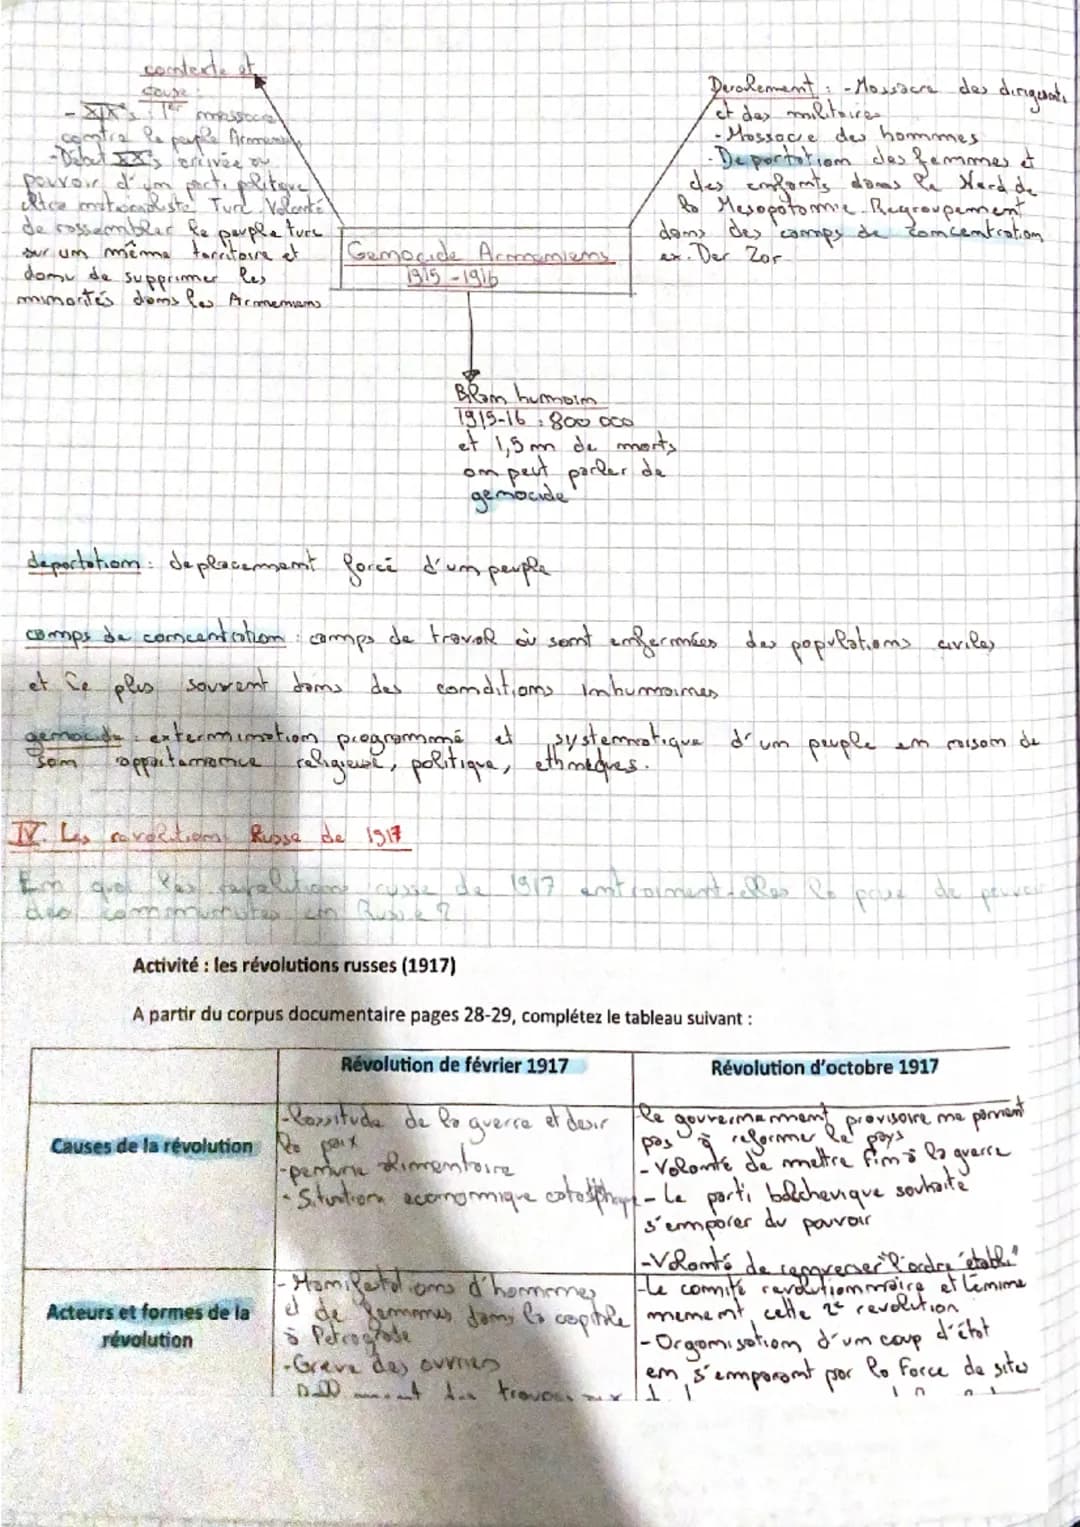 contexte et
cause :
- XIX's : 1er massacre
contre le peuple Armenien
- Debut XX's arrivée au
pouvoir d'un parti politique
ultra nationaliste Turc. Volonté
de rassembler le peuple turc
sur un même territoire et
donc de supprimer les
minorités dons les Armeniens
Genocide Armeniens
1915 - 1916
Deroulement : - Massacre des dirigeants
et des militaires
- Massacre des hommes
- Deportation des femmes et
des enfants dans le Nord de
la Mesopotamie. Regroupement
dans des camps de concentration
ex. Der Zor
Bilan humain
1915-16 : 800 000
et 1,5 mn de morts
on peut parler de
genocide
deportation : deplacement forcé d'un peuple
camps de concentration : camps de travail où sont enfermées des populations civiles
et le plus souvent dans des conditions inhumaines
genocide : extermination programmé et systematique d'un peuple en raison de
son appartenance religieuse, politique, ethniques.
IV. Les revolutions Russe de 1917
En quoi les revolutions russe de 1917 entrainent-elles la prise de pouvoir
des communistes en Russie ?
Activité : les révolutions russes (1917)
A partir du corpus documentaire pages 28-29, complétez le tableau suivant :
Révolution de février 1917
Révolution d'octobre 1917
Causes de la révolution
- Lassitude de la guerre et desir
de paix
- penurie alimentaire
- Situation economique catastrophique
le gouvernement provisoire ne parvient
pas à reformer le pays
- Volonté de mettre fin à la guerre
- Le parti bolchevique souhaite
s'emparer du pouvoir
- Volonté de renverser "l'ordre établi"
Acteurs et formes de la
révolution
- Manifestations d'hommes
et de femmes dans la capitale
à Petrograde
- Greve des ouvriers
- Le comité revolutionnaire et Lénine
menent cette 2e revolution
- Organisation d'un coup d'état
en s'emparant par la force de sites